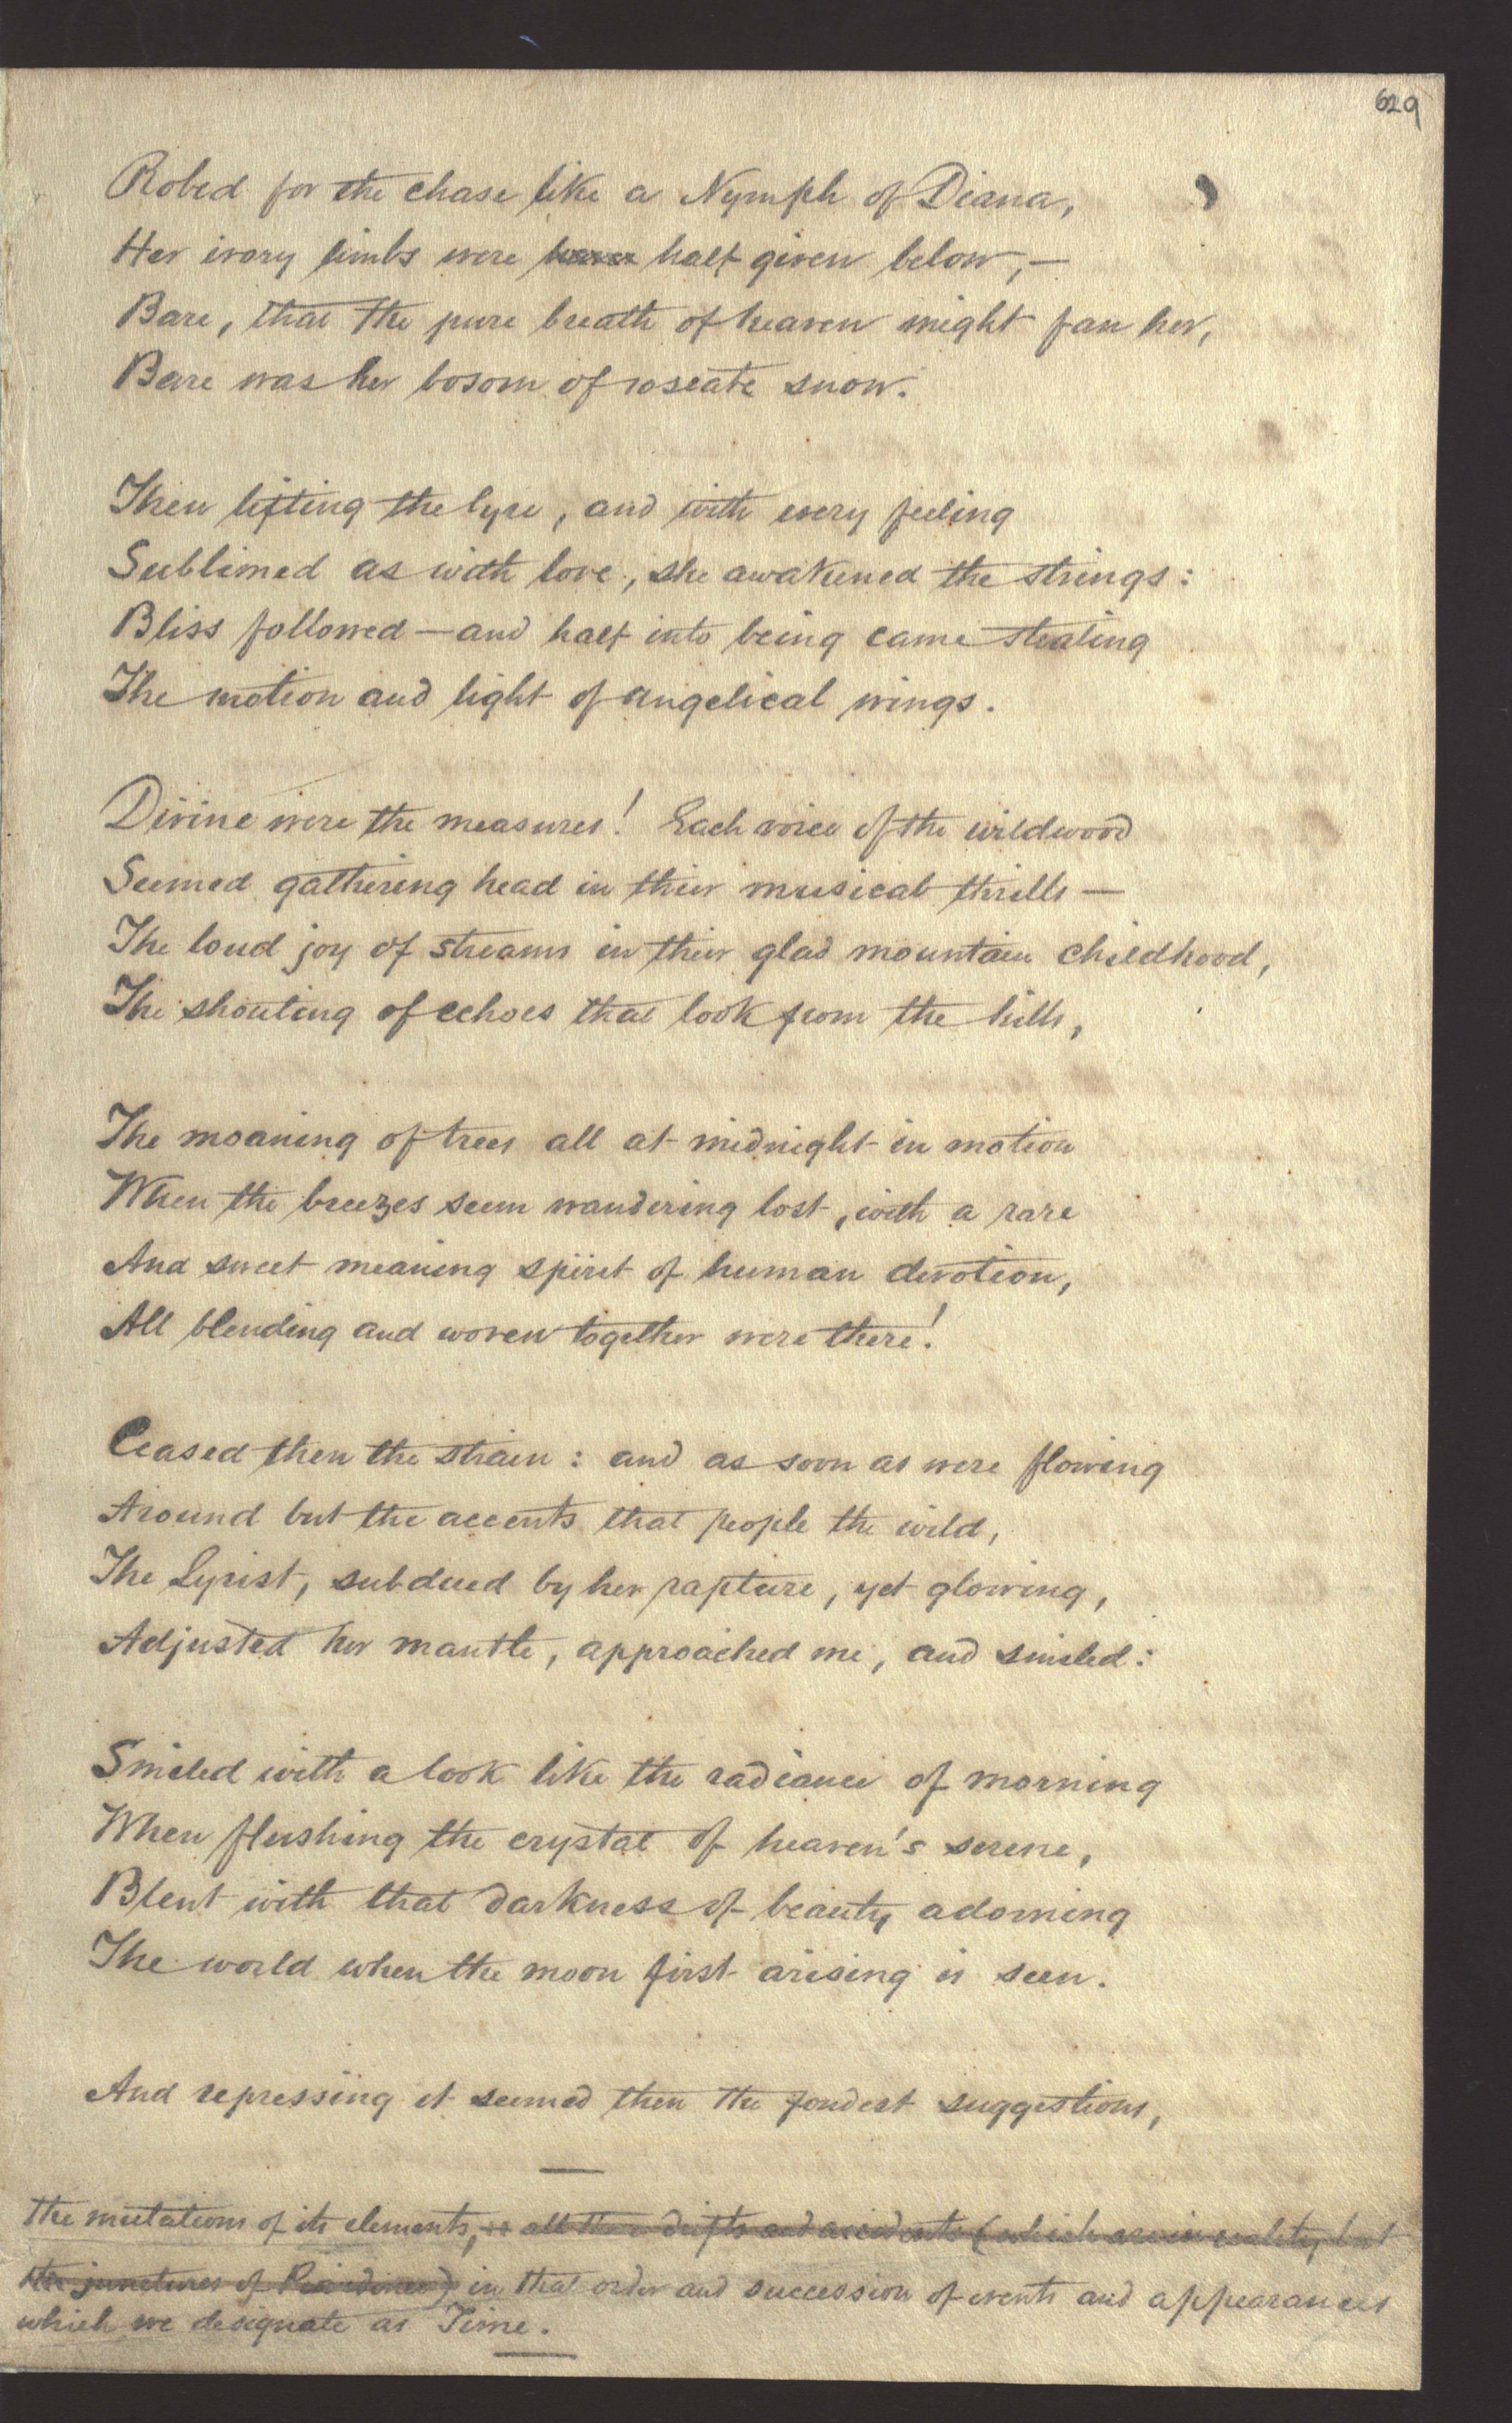 629
Robed for the chase like a Nymph of Diana,
Her ivory limbs were half given below,—
Bare, that the pure breath of heaven might fan her,
Bare was her bosom of roseate snow.
Then lifting the lyre, and with every feeling
Sublimed as with love, she awakened the strings:
Bliss followed—and half into being came stealing
The motion and light of angelical wings.
Divine were the measures! Each voice of the wildwood
Seemed gathering head in their musical thrills—
The loud joy of streams in their glad mountain childhood,
The shouting of echoes that look from the hills,
The moaning of trees all at midnight in motion
When the breezes seem wandering lost, with a rare
And sweet meaning spirit of human devotion,
All blending and woven together were there!
Ceased then the strain: and as soon as were flowing
Around but the accents that people the wild,
The Lyrist, subdued by her rapture, yet glowing,
Adjusted her mantle, approached me, and smiled:
Smiled with a look like the radiance of morning
When flushing the crystal of heaven's serene,
Blent with that darkness of beauty adorning
The world when the moon first arising is seen.
And repressing it seemed then the fondest suggestions,
the mutations of its elements, all drifts and accidents (which are in reality but
the junctures of in that order and succession of events and appearances
which we designate as Time.